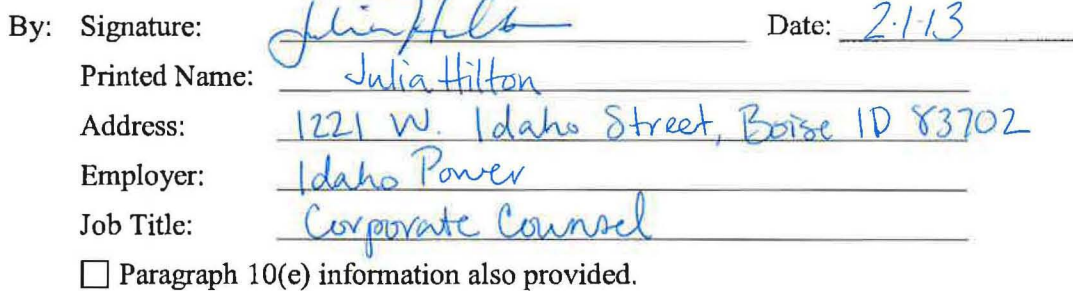 By: Signature: Julia Hilton Date: 2·1·13
Printed Name: Julia Hilton
Address: 1221 W. Idaho Street, Boise ID 83702
Employer: Idaho Power
Job Title: Corporate Counsel
Paragraph 10(e) information also provided.